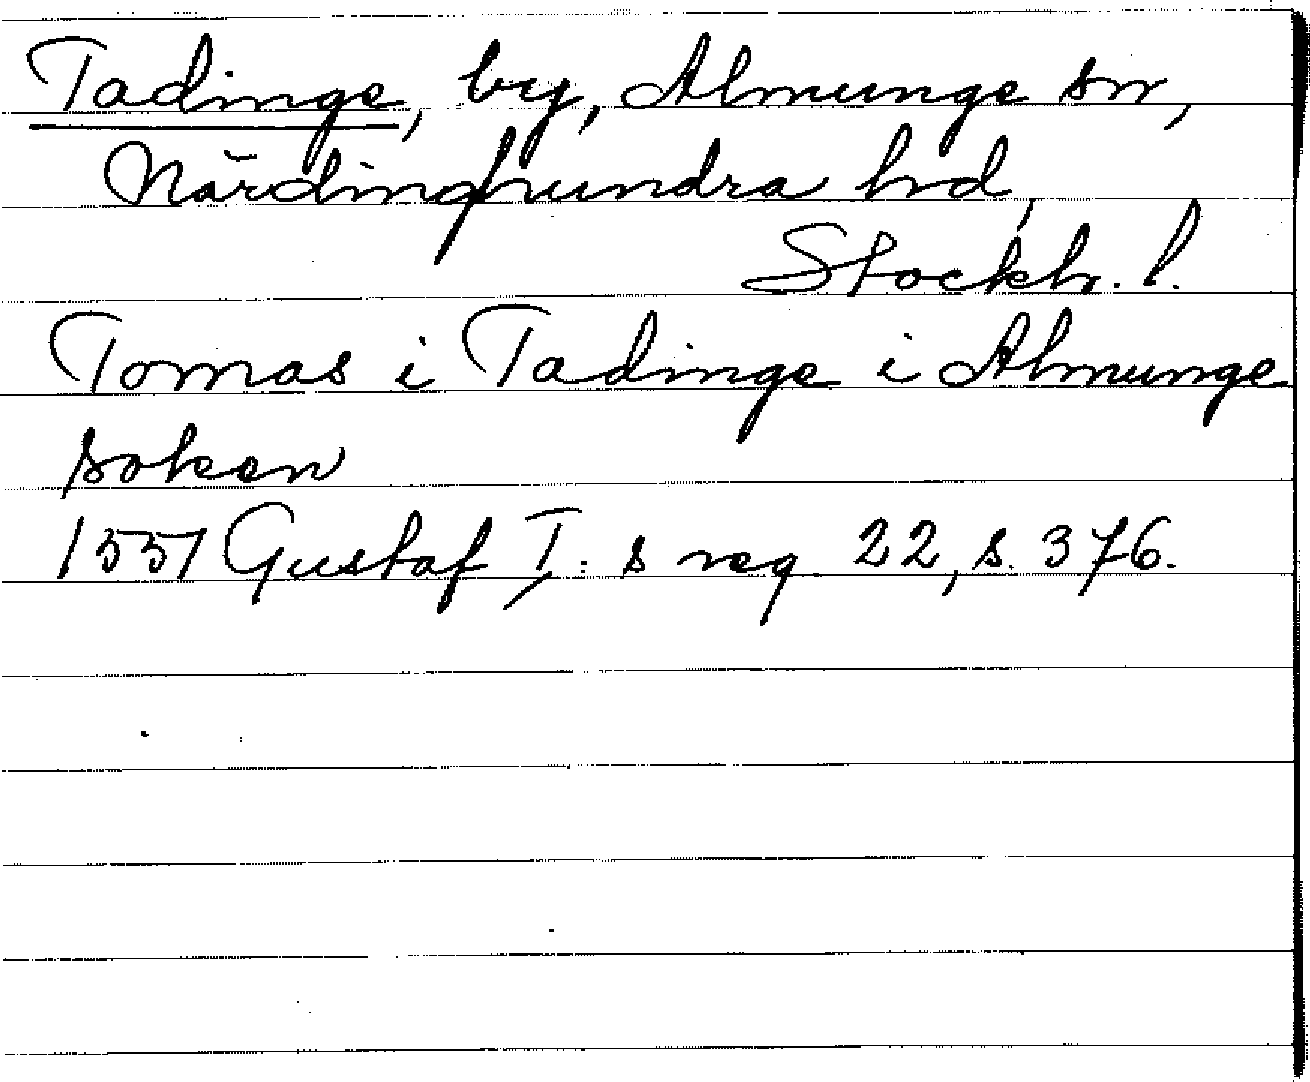 Tadinge, by, Almunge sn,
Närdinghundra hd,
Stockh. l.
Tomas i Tadinge i Almunge
soken
1551 Gustaf I:s reg 22, s. 376.